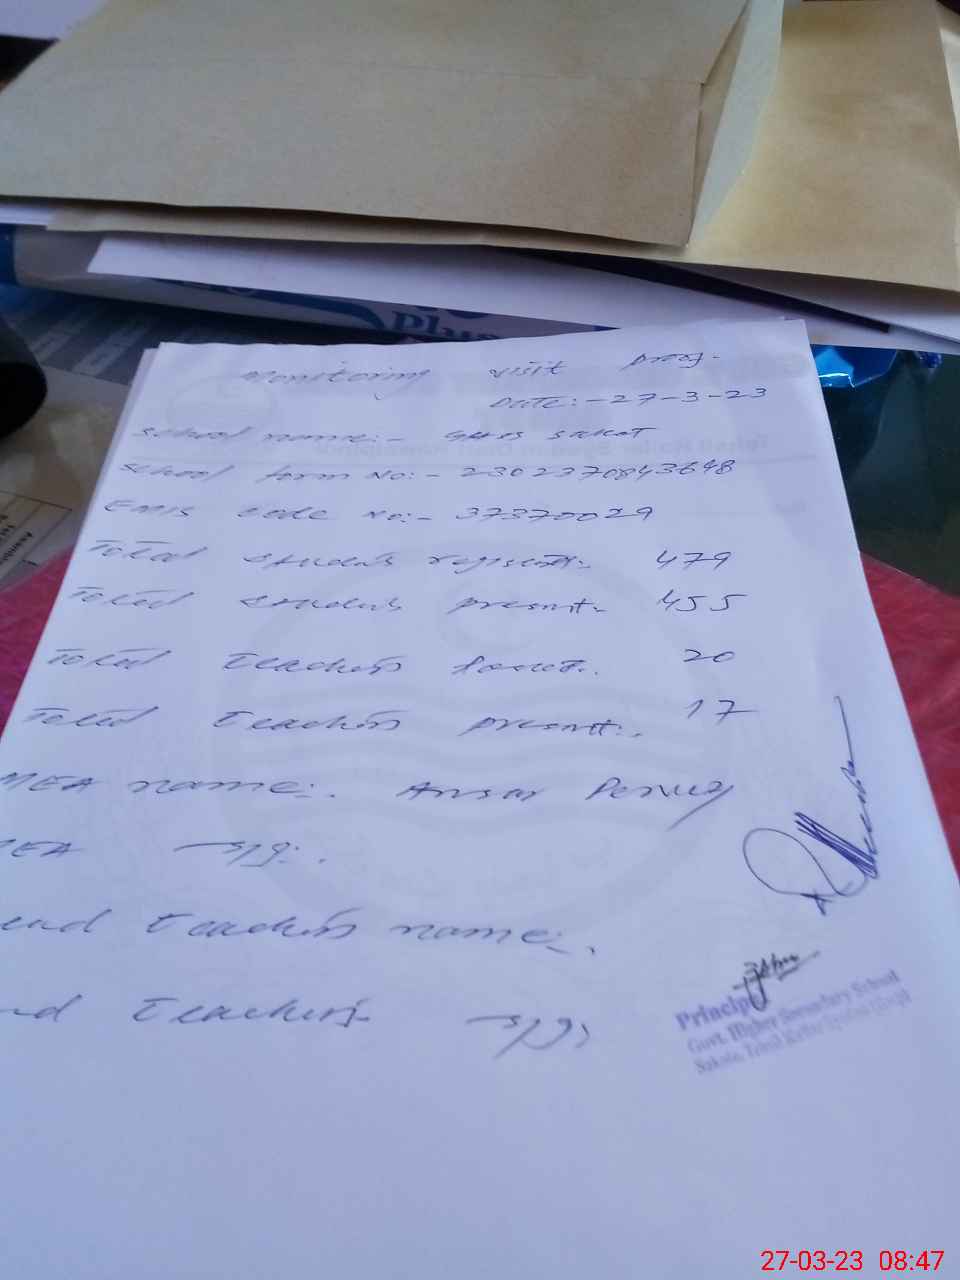 Plus
Monitoring visit proof.
Date:-27-3-23
School name:- GHSS Sakot
School form No:- 2302370843648
Emis Code No:- 37370029
Total students register:- 479
Total students present:- 455
Total teachers 20
Total teachers present:. 17
MEA name:. Ansar Pervez
MEA sig:.
teachers name:.
teachers sig:
Principal
Govt. Higher Secondary School
27-03-23 08:47